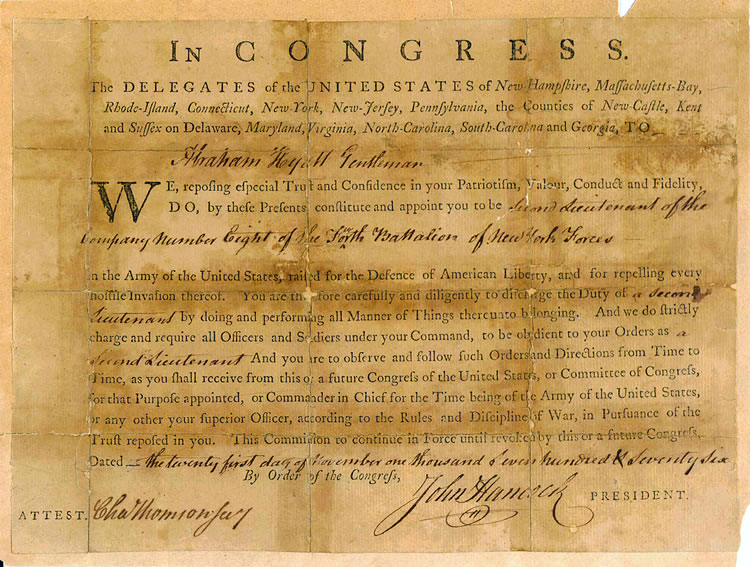 IN CONGRESS.
The DELEGATES of the UNITED STATES of New-Hampshire, Massachusetts-Bay,
Rhode-Island, Connecticut, New-York, New-Jersey, Pennsylvania, the Counties of New-Castle, Kent
and Sussex on Delaware, Maryland, Virginia, North-Carolina, South-Carolina and Georgia, TO
Abraham Hyatt Gentleman
WE, reposing especial Trust and Confidence in your Patriotism, Valour, Conduct and Fidelity,
DO, by these Presents, constitute and appoint you to be Second Lieutenant of the
Company Number Eight of the Forth Battalion of New York Forces
in the Army of the United States, raised for the Defence of American Liberty, and for repelling every
hostile Invasion thereof. You are therefore carefully and diligently to discharge the Duty of a Second
Lieutenant by doing and performing all Manner of Things thereunto belonging. And we do strictly
charge and require all Officers and Soldiers under your Command, to be obedient to your Orders as a
Second Lieutenant And you are to observe and follow such Orders and Directions from Time to
Time, as you shall receive from this or a future Congress of the United States, or Committee of Congress,
for that Purpose appointed, or Commander in Chief for the Time being of the Army of the United States,
or any other your superior Officer, according to the Rules and Discipline of War, in Pursuance of the
Trust reposed in you. This Commission to continue in Force until revoked by this or a future Congress.
Dated the twenty first day of November one thousand Seven hundred & Seventy Six
By Order of the Congress,
John Hancock PRESIDENT.
ATTEST. Cha Thomson Secy